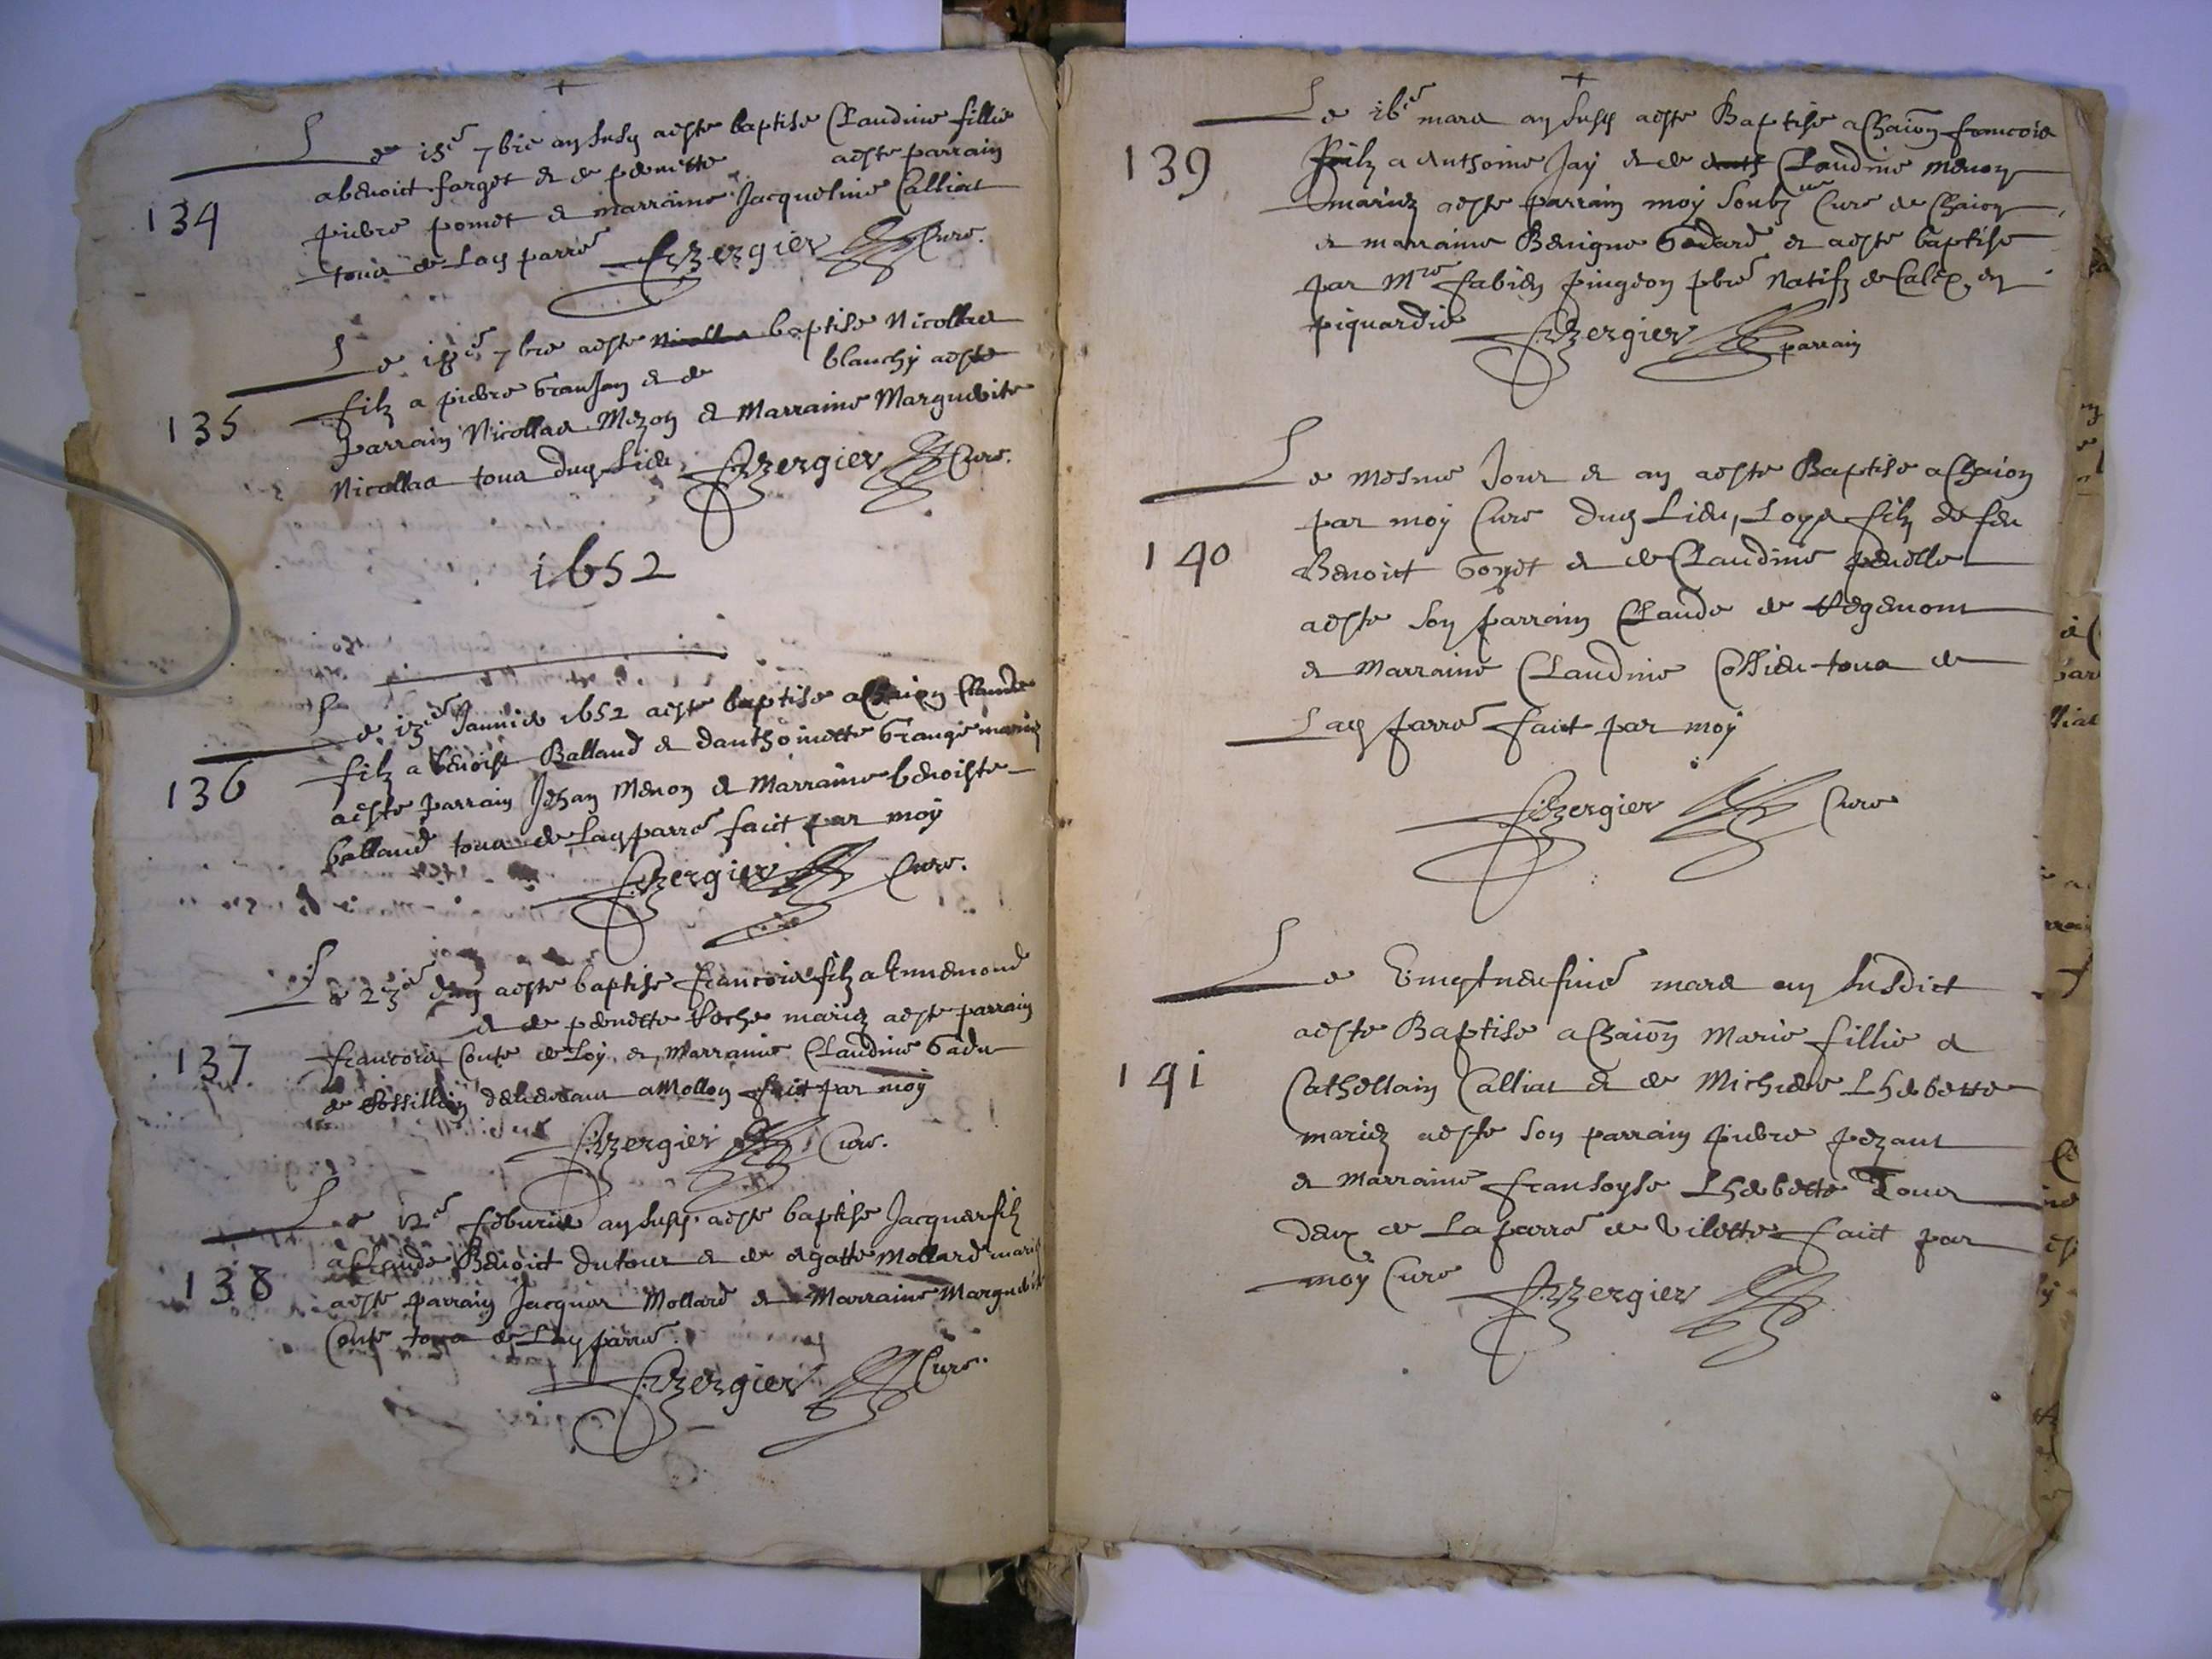 Le 15e 7bre an susd aeste baptise Claudine fillie
a benoict farget et de pernette aeste parrain
134
pierre pomet et marraine Jacqueline Calliat
tous de Lad parre Bergier Cure.
Le 18e 7bre aeste baptise Nicollas
filz a pierre Granjan et de blanchy aeste
135
parrain Nicollas Mezon et Marraine Marguerite
Nicollas tous dud Lieu Bergier Cure.
1652
Le 13e Janvier 1652 aeste baptise a Chaion Claude
filz a benoist Balland et danthoinette Grange mariez
136
aeste parrain Jehan Menon et Marraine benoiste
balland tous de Lad parre faict par moy
Bergier Cure.
Le 23e dud aeste baptise francois filz a Ennemond
et de pernette mariez aeste parrain
137
francois Conte de Loy et Marraine Claudine Gadu
de demeurant a Mollon faict par moy
Bergier Cure.
Le 12e feburier an susd aeste baptise Jacques filz
a Claude Benoict dutour et de Agatte Mollard mariez
138
aeste parrain Jacques Mollard et Marraine Marguerite
Conte tous de Lad parre
Bergier Cure.
Le 16e mars an susd aeste Baptise a Chaion francois
139
filz a Anthoine Jay et de Claudine Menon
mariez aeste parrain moy soubz Cure de Chaion
et marraine Benigne Godard et aeste baptise
par Mre fabien pingeon pbre Natifz de Calex en
piquardie Bergier parrain
Le mesme Jour et an aeste Baptise a Chaion
par moy Cure dud Lieu, Loyse filz de feu
140
Benoict Goyet et de Claudine penelle
aeste son parrain Claude de
et Marraine Claudine Collieu tous de
Lad parre faict par moy
Bergier Cure
Le Vingtneufine mars an susdict
aeste Baptise a Chaion Marie fillie a
141
Cathellain Calliat et de Michiere Lheberte
mariez aeste son parrain pierre pezant
et Marraine fransoyse Lheberte Tous
deux de La parre de Vilette faict par
moy Cure Bergier